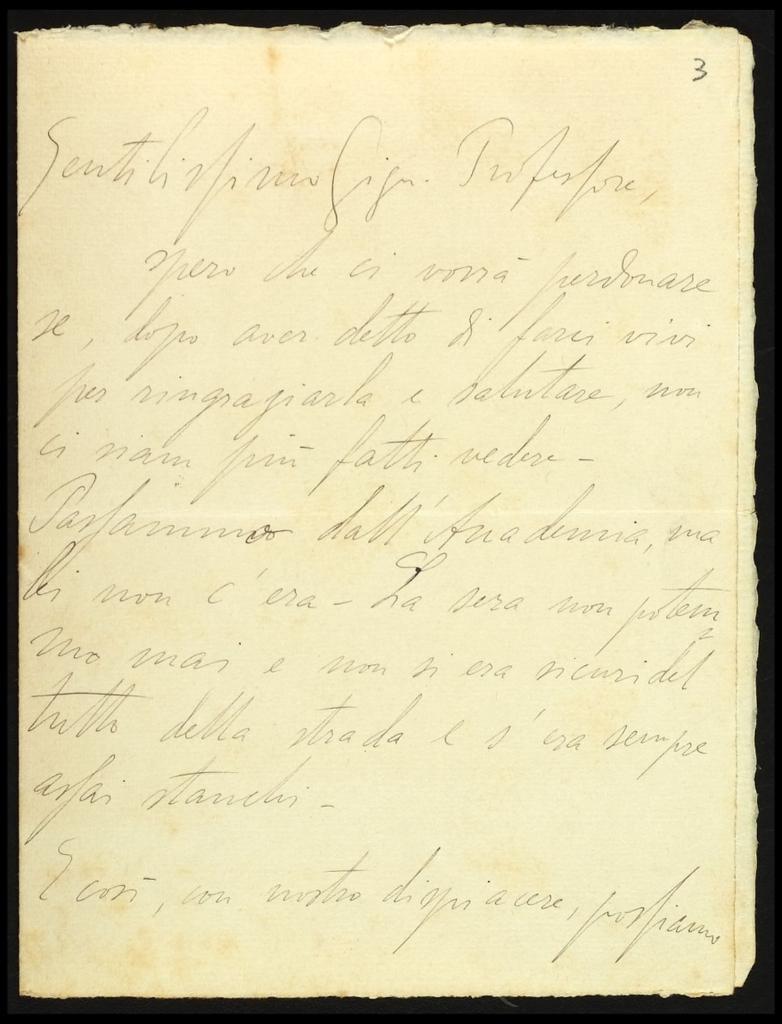 3
Gentilissimo Sign. Professore,
spero che ci vorrà perdonare
se, dopo aver detto di farci vivi
per ringraziarla e salutare, non
ci siam più fatti vedere –
Passammo dall'Accademia, ma
lei non c'era – La sera non potem
mo mai e non si era sicuri del
tutto della strada e s'era sempre
assai stanchi –
E così, con nostro dispiacere, possiamo